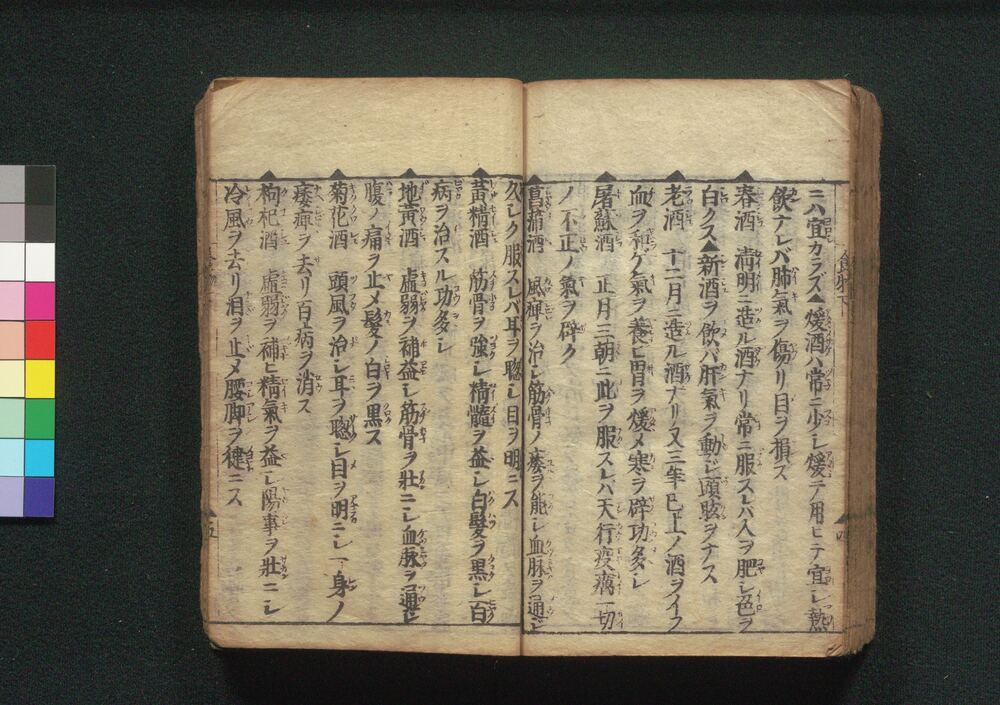 ニハ宜カラズ▲煖酒ハ常ニ少シ煖テ用ヒテ宜シ熱
飲ナレバ肺氣ヲ傷リ目ヲ損ズ
春酒 淸明ニ造ル酒ナリ常ニ服スレバ人ヲ肥シ色ヲ
白クス▲新酒ヲ飲バ肝氣ヲ動シ頭眩ヲナス
老酒 十二月ニ造ル酒ナリ又三年已上ノ酒ヲイフ
血ヲ和ゲ氣ヲ養ヒ胃ヲ煖メ寒ヲ辟功多シ
屠蘇酒 正月三朝ニ此ヲ服スレバ天行疫癘一切
ノ不正ノ氣ヲ辟ク
菖蒲酒 風痺ヲ治シ筋骨ノ痿ヲ能シ血脉ヲ通シ
久シク服スレバ耳ヲ聰シ目ヲ明ニス
黃精酒 筋骨ヲ強シ精髓ヲ益シ白髮ヲ黒シ百
病ヲ治スル功多シ
地黃酒 虛弱ヲ補益シ筋骨ヲ壯ニシ血脉ヲ通シ
腹ノ痛ヲ止メ髮ノ白ヲ黒ス
菊花酒 頭風ヲ治シ耳ヲ聰シ目ヲ明ニシ一身ノ
痿痺ヲ去リ百病ヲ消ス
枸杞酒 虛弱ヲ補ヒ精氣ヲ益シ陽事ヲ壯ニシ
冷風ヲ去リ泪ヲ止メ腰脚ヲ健ニス